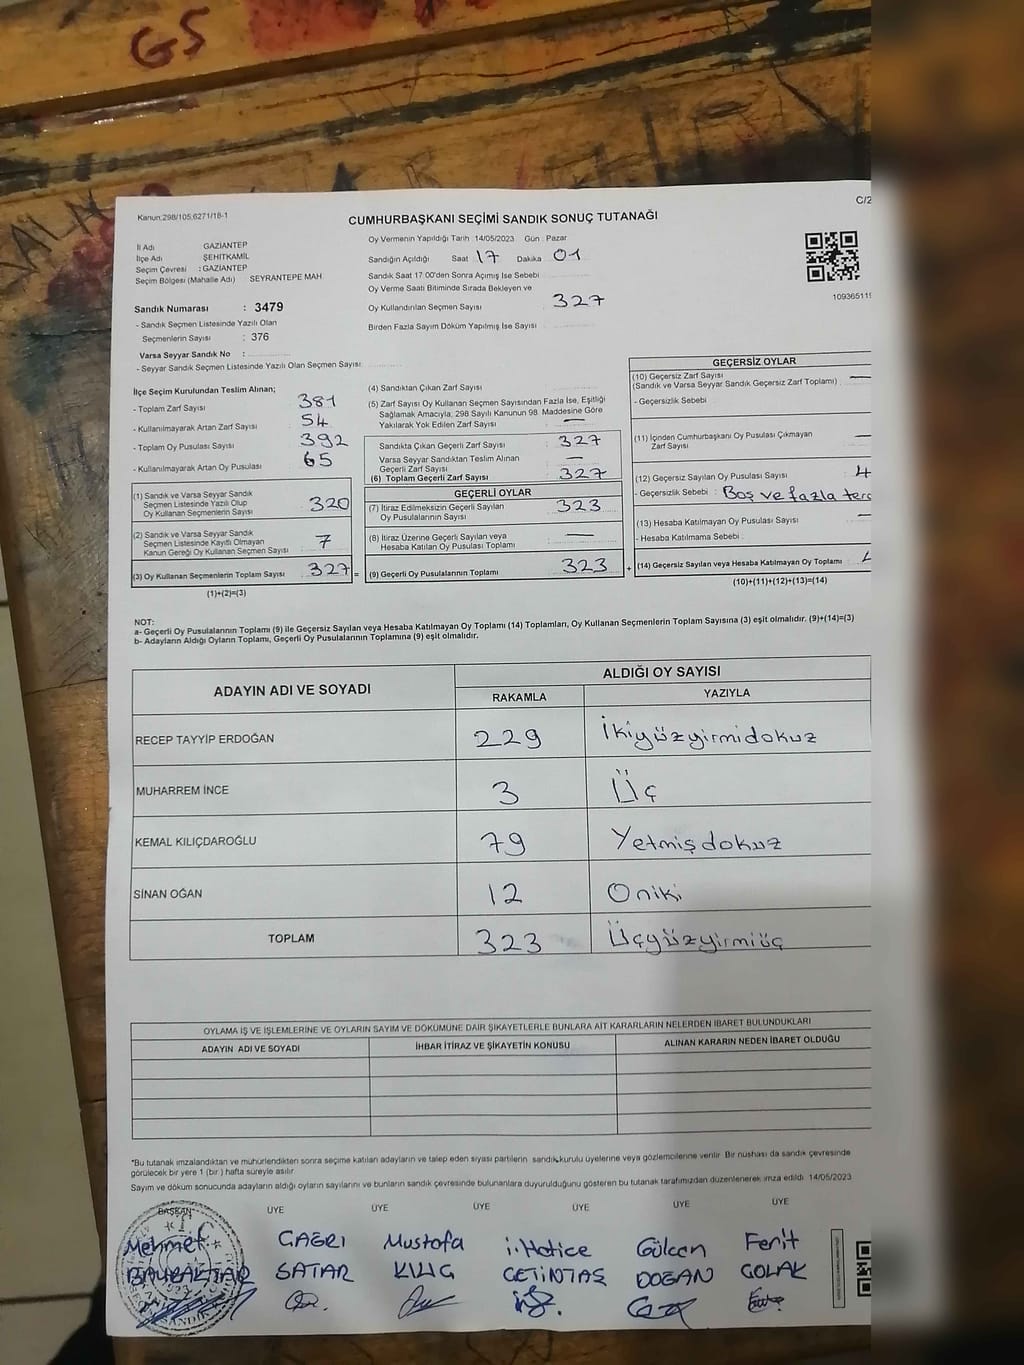 GS
Kanun:298/105;6271/18-1
C/2
CUMHURBAŞKANI SEÇİMİ SANDIK SONUÇ TUTANAĞI
İl Adı GAZİANTEP
İlçe Adı ŞEHİTKAMİL
Seçim Çevresi : GAZİANTEP
Seçim Bölgesi (Mahalle Adı) SEYRANTEPE MAH.
Oy Vermenin Yapıldığı Tarih : 14/05/2023 Gün : Pazar
Sandığın Açıldığı Saat 17 Dakika 01
Sandık Saat 17:00'den Sonra Açılmış İse Sebebi
Oy Verme Saati Bitiminde Sırada Bekleyen ve
Oy Kullandırılan Seçmen Sayısı 327
Birden Fazla Sayım Döküm Yapılmış İse Sayısı
109365119
Sandık Numarası : 3479
- Sandık Seçmen Listesinde Yazılı Olan
Seçmenlerin Sayısı : 376
Varsa Seyyar Sandık No :
- Seyyar Sandık Seçmen Listesinde Yazılı Olan Seçmen Sayısı
İlçe Seçim Kurulundan Teslim Alınan;
- Toplam Zarf Sayısı 381
- Kullanılmayarak Artan Zarf Sayısı 54
- Toplam Oy Pusulası Sayısı 392
- Kullanılmayarak Artan Oy Pusulası 65
(1) Sandık ve Varsa Seyyar Sandık
Seçmen Listesinde Yazılı Olup
Oy Kullanan Seçmenlerin Sayısı 320
(2) Sandık ve Varsa Seyyar Sandık
Seçmen Listesinde Kayıtlı Olmayan
Kanun Gereği Oy Kullanan Seçmen Sayısı 7
(3) Oy Kullanan Seçmenlerin Toplam Sayısı 327 =
(1)+(2)=(3)
(4) Sandıktan Çıkan Zarf Sayısı
(5) Zarf Sayısı Oy Kullanan Seçmen Sayısından Fazla İse, Eşitliği
Sağlamak Amacıyla; 298 Sayılı Kanunun 98. Maddesine Göre
Yakılarak Yok Edilen Zarf Sayısı : —
Sandıkta Çıkan Geçerli Zarf Sayısı : 327
Varsa Seyyar Sandıktan Teslim Alınan
Geçerli Zarf Sayısı : —
(6) Toplam Geçerli Zarf Sayısı : 327
GEÇERLİ OYLAR
(7) İtiraz Edilmeksizin Geçerli Sayılan
Oy Pusulalarının Sayısı : 323
(8) İtiraz Üzerine Geçerli Sayılan veya
Hesaba Katılan Oy Pusulası Toplamı : —
(9) Geçerli Oy Pusulalarının Toplamı 323 +
GEÇERSİZ OYLAR
(10) Geçersiz Zarf Sayısı —
(Sandık ve Varsa Seyyar Sandık Geçersiz Zarf Toplamı)
- Geçersizlik Sebebi
(11) İçinden Cumhurbaşkanı Oy Pusulası Çıkmayan
Zarf Sayısı —
(12) Geçersiz Sayılan Oy Pusulası Sayısı : 4
- Geçersizlik Sebebi : Boş ve fazla terc
(13) Hesaba Katılmayan Oy Pusulası Sayısı : —
- Hesaba Katılmama Sebebi :
(14) Geçersiz Sayılan veya Hesaba Katılmayan Oy Toplamı
(10)+(11)+(12)+(13)=(14)
NOT:
a- Geçerli Oy Pusulalarının Toplamı (9) ile Geçersiz Sayılan veya Hesaba Katılmayan Oy Toplamı (14) Toplamları, Oy Kullanan Seçmenlerin Toplam Sayısına (3) eşit olmalıdır. (9)+(14)=(3)
b- Adayların Aldığı Oyların Toplamı, Geçerli Oy Pusulalarının Toplamına (9) eşit olmalıdır.
ADAYIN ADI VE SOYADI ALDIĞI OY SAYISI
RAKAMLA YAZIYLA
RECEP TAYYİP ERDOĞAN 229 İkiyüzyirmidokuz
MUHARREM İNCE 3 Üç
KEMAL KILIÇDAROĞLU 79 Yetmişdokuz
SİNAN OĞAN 12 Oniki
TOPLAM 323 Üçyüzyirmiüç
OYLAMA İŞ VE İŞLEMLERİNE VE OYLARIN SAYIM VE DÖKÜMÜNE DAİR ŞİKAYETLERLE BUNLARA AİT KARARLARIN NELERDEN İBARET BULUNDUKLARI
ADAYIN ADI VE SOYADI İHBAR İTİRAZ VE ŞİKAYETİN KONUSU ALINAN KARARIN NEDEN İBARET OLDUĞU
*Bu tutanak imzalandıktan ve mühürlendikten sonra seçime katılan adayların ve talep eden siyasi partilerin sandık kurulu üyelerine veya gözlemcilerine verilir. Bir nüshası da sandık çevresinde
görülecek bir yere 1 (bir) hafta süreyle asılır.
Sayım ve döküm sonucunda adayların aldığı oyların sayılarını ve bunların sandık çevresinde bulunanlara duyurulduğunu gösteren bu tutanak tarafımızdan düzenlenerek imza edildi. 14/05/2023
BAŞKAN ÜYE ÜYE ÜYE ÜYE ÜYE ÜYE
Mehmet ÇAĞRI Mustafa i.Hatice Gülcan Ferit
BAYRAKTAR SATAR KILIÇ ÇETİNTAŞ DOĞAN ÇOLAK
T.C.
SANDIK